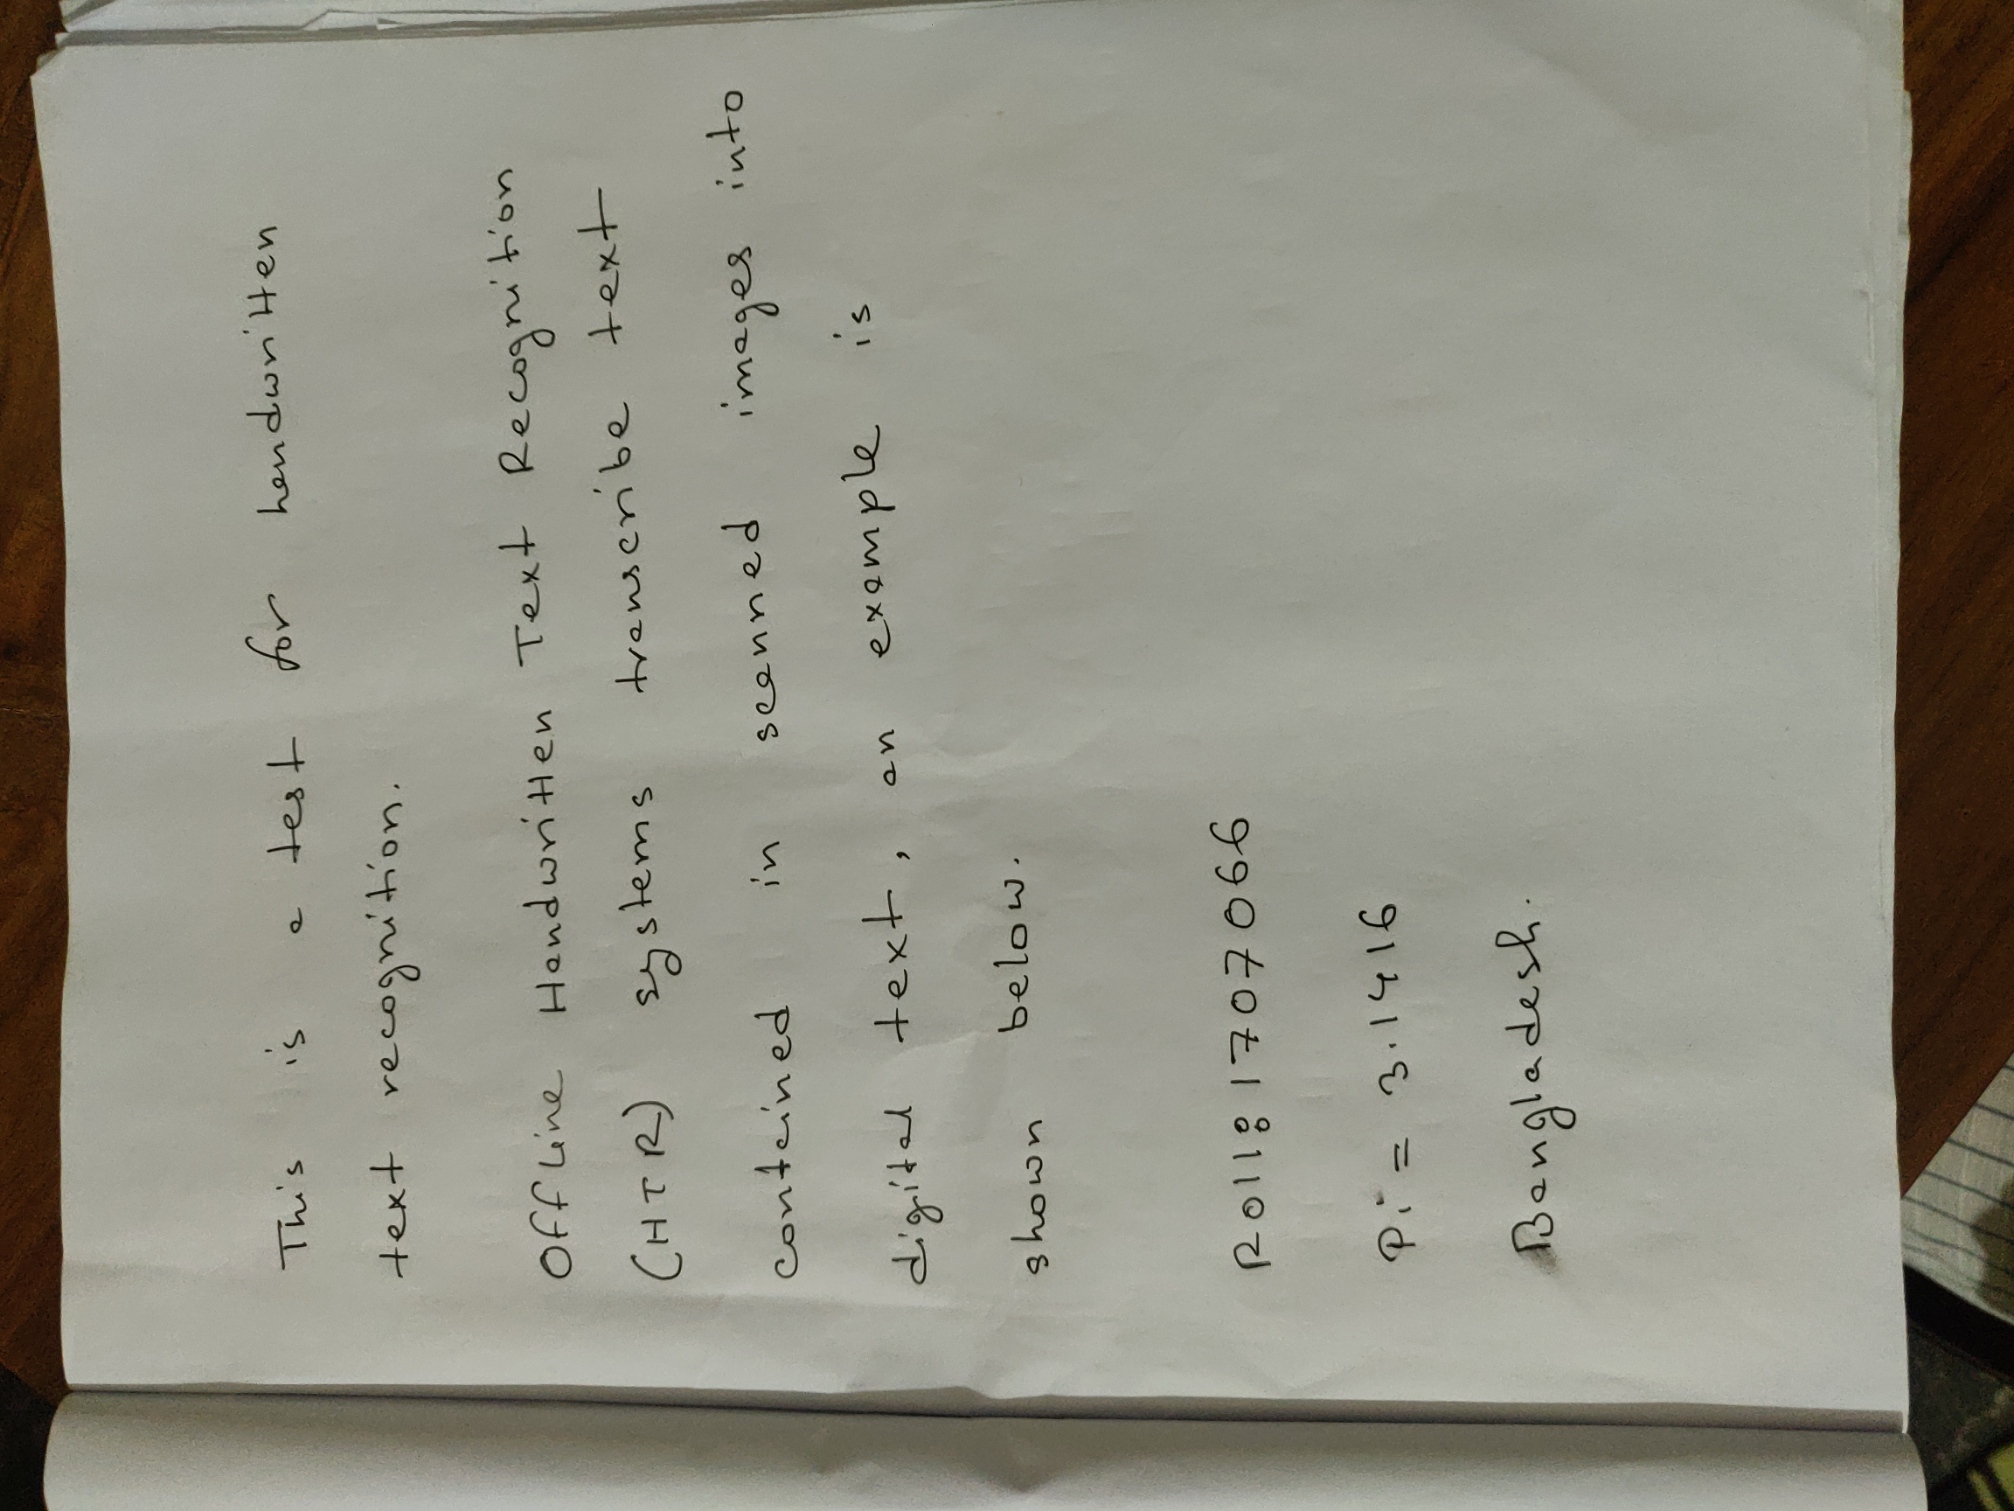 This is a test for handwritten
text recognition.
Offline Handwritten Text Recognition
(HTR) systems transcribe text
contained in scanned images into
digital text, an example is
shown below.
Roll: 1707066
Pi = 3.1416
Bangladesh.